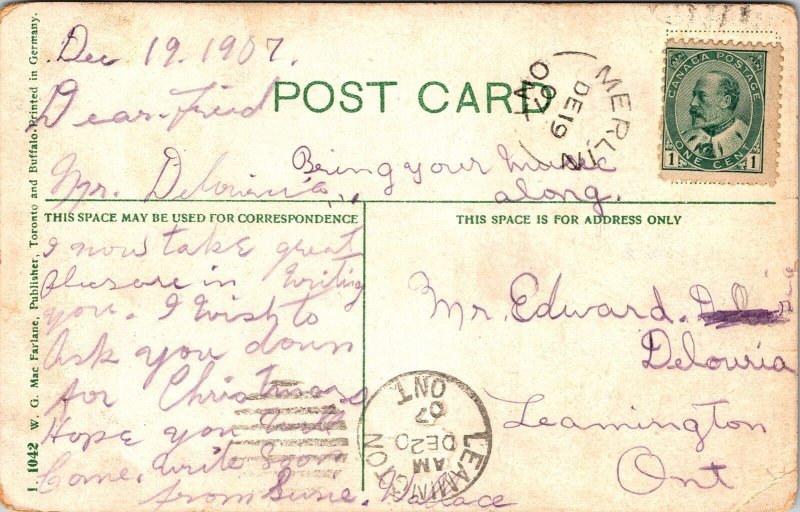 Dec 19. 1907.
Dear Fried
POST CARD
MERLIN
DE 19
07
ONT
CANADA POSTAGE
1 ONE CENT 1
Bring your music
along.
Mr. Delouria
THIS SPACE MAY BE USED FOR CORRESPONDENCE
THIS SPACE IS FOR ADDRESS ONLY
I now take great
pleasure in writing
you. I wish to
Ask you down
for Christmas
Hope you will
Come. write soon
from Susie. Wallace
Mr. Edward.
Delouria
Leamington
Ont
LEAMINGTON
AM
DE 20
07
ONT.
1. 1042 W. G. Mac Farlane, Publisher, Toronto and Buffalo-Printed in Germany.